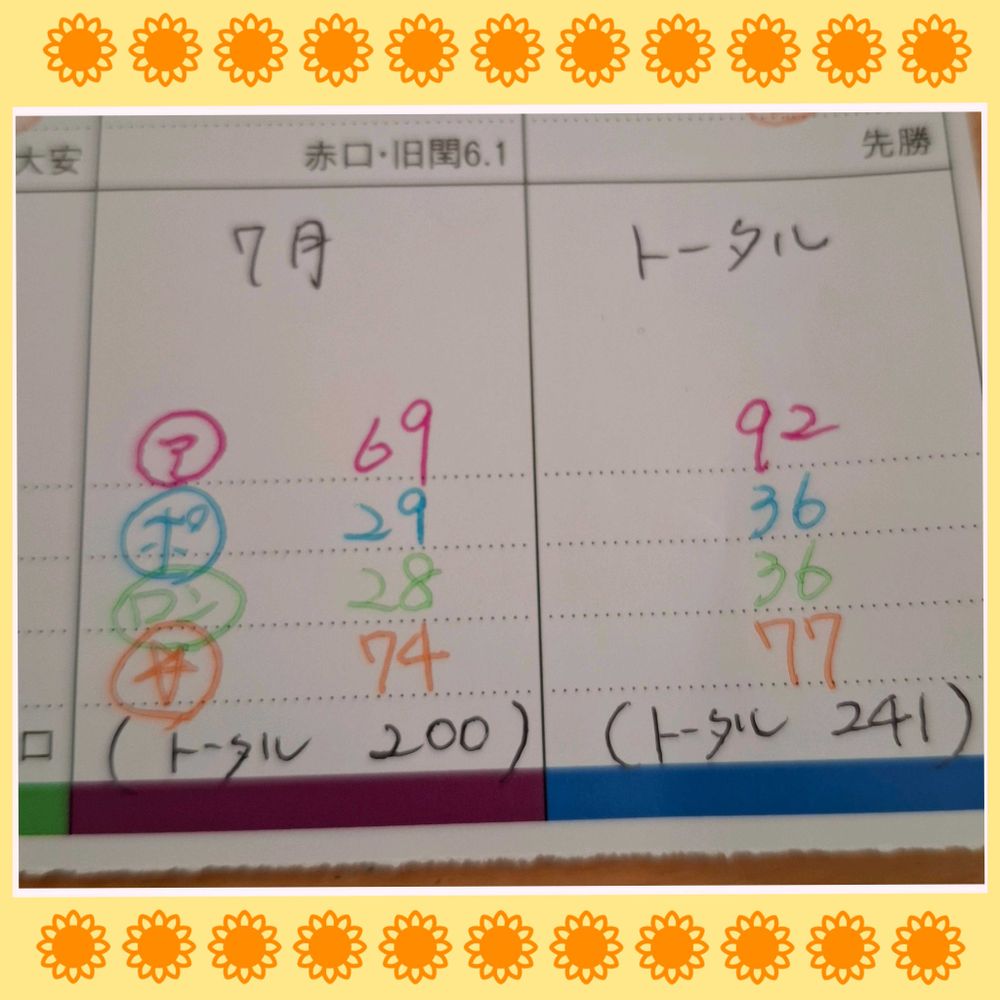 大安 赤口・旧閏6.1 先勝
7月 トータル
ア 69 92
ポ 29 36
ワン 28 36
サ 74 77
(トータル 200) (トータル 241)